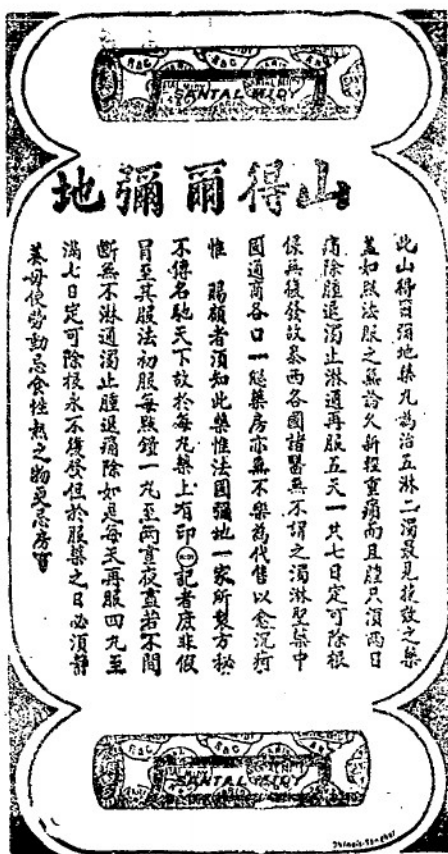 RAC RAC
SANTAL MIDY
山得爾彌地
此山得爾彌地藥丸為治五淋二濁最見捷效之藥
蓋如照法服之無論久新輕重痛而且腫只須兩日
痛除腫退濁止淋通再服五天一共七日定可除根
保無復發故泰西各國諸醫無不謂之濁淋聖藥中
國通商各口一概藥房亦無不樂為代售以愈沉疴
惟 賜顧者須知此藥惟法國彌地一家所製方秘
不傳名馳天下故於每丸藥上有印記者庶非假
冒至其服法初服每點鐘一丸至兩晝夜晝若不間
斷無不淋通濁止腫退痛除如是每天再服四丸至
滿七日定可除根永不復發但於服藥之日必須靜
養毋使勞動忌食性熱之物更忌房
RAC
SANTAL MIDY